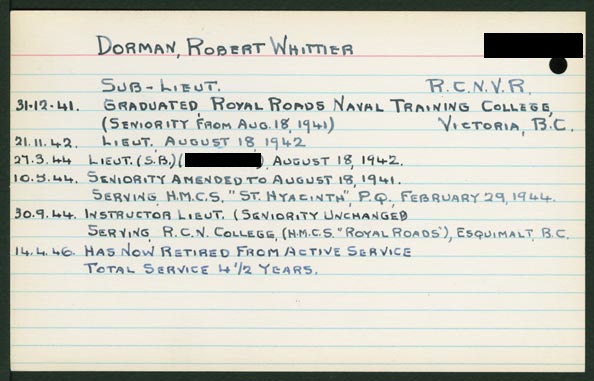 DORMAN, ROBERT WHITTIER
SUB-LIEUT. R.C.N.V.R.
31·12·41. GRADUATED, ROYAL ROADS NAVAL TRAINING COLLEGE,
(SENIORITY FROM AUG. 18, 1941) VICTORIA, B.C.
21.11.42. LIEUT. AUGUST 18, 1942
27.3.44 LIEUT. (S.B.) ( ) AUGUST 18, 1942.
10.5.44. SENIORITY AMENDED TO AUGUST 18, 1941.
SERVING, H.M.C.S. "ST. HYACINTH", P.Q., FEBRUARY 29, 1944.
30.9.44. INSTRUCTOR LIEUT. (SENIORITY UNCHANGED
SERVING, R.C.N. COLLEGE, (H.M.C.S. "ROYAL ROADS"), ESQUIMALT, B.C.
14.4.46. HAS NOW RETIRED FROM ACTIVE SERVICE
TOTAL SERVICE 4 1/2 YEARS.